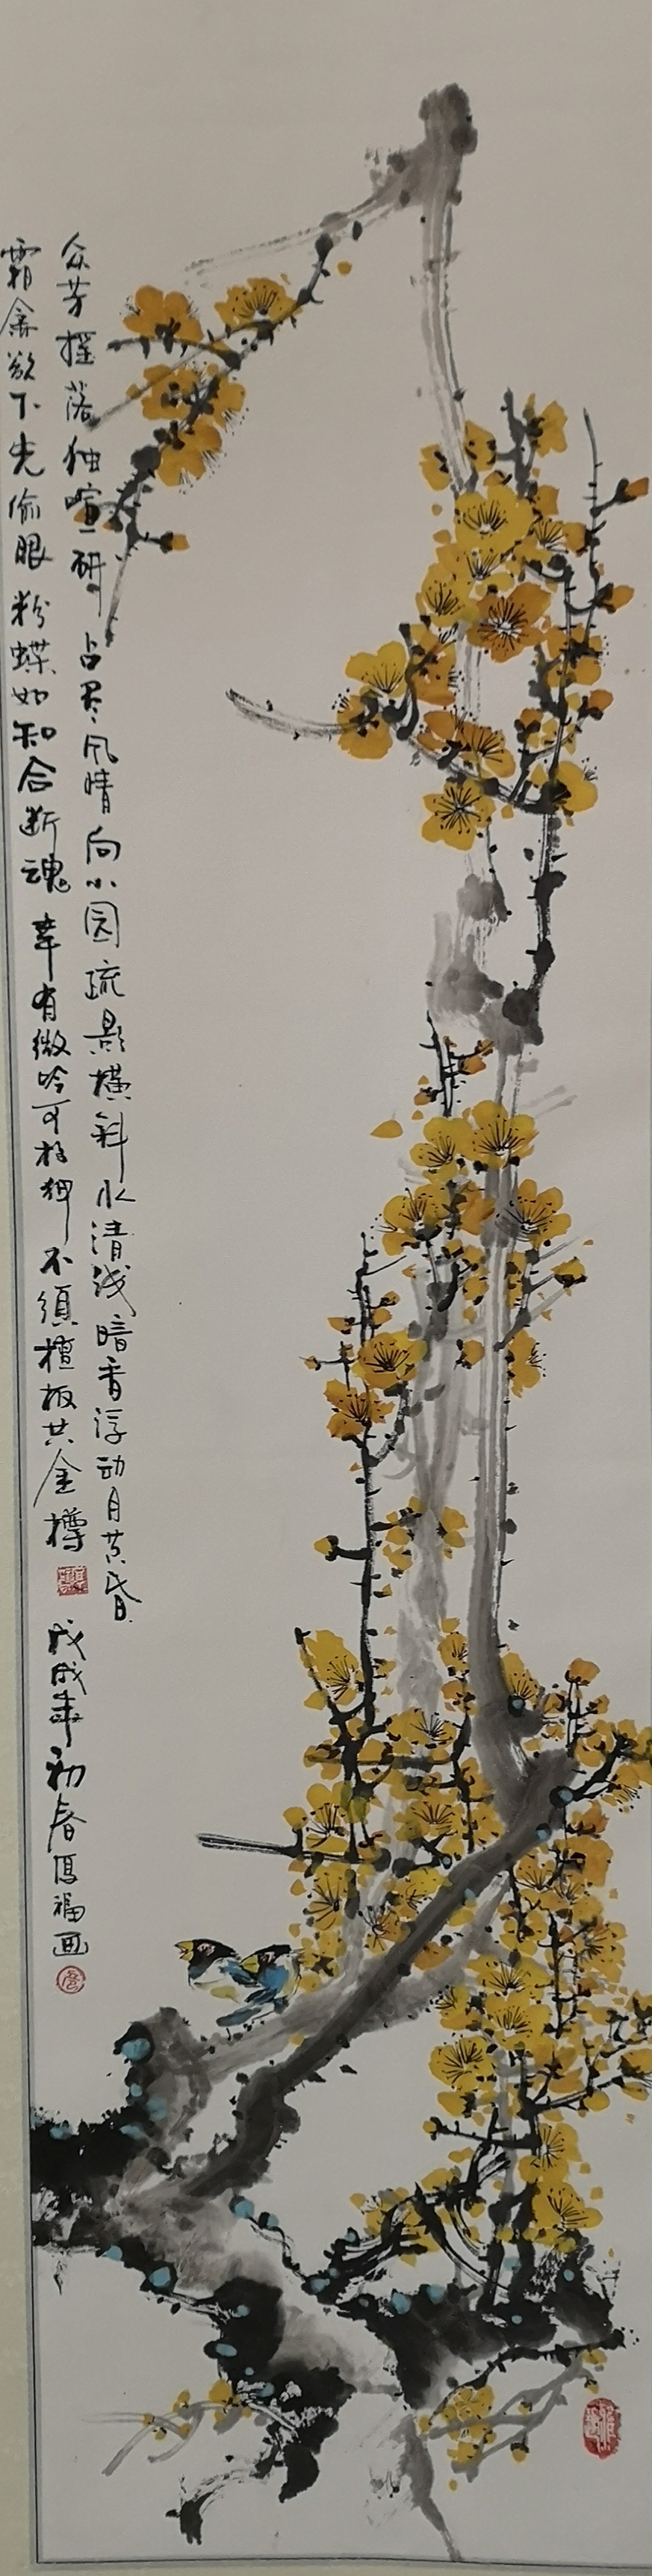 众芳摇落独喧研 占尽风情向小园 疏影横斜水清浅 暗香浮动月黄昏
霜禽欲下先偷眼 粉蝶如知合断魂 幸有微吟可相狎 不須檀板共金樽
戊戌年初春 福画